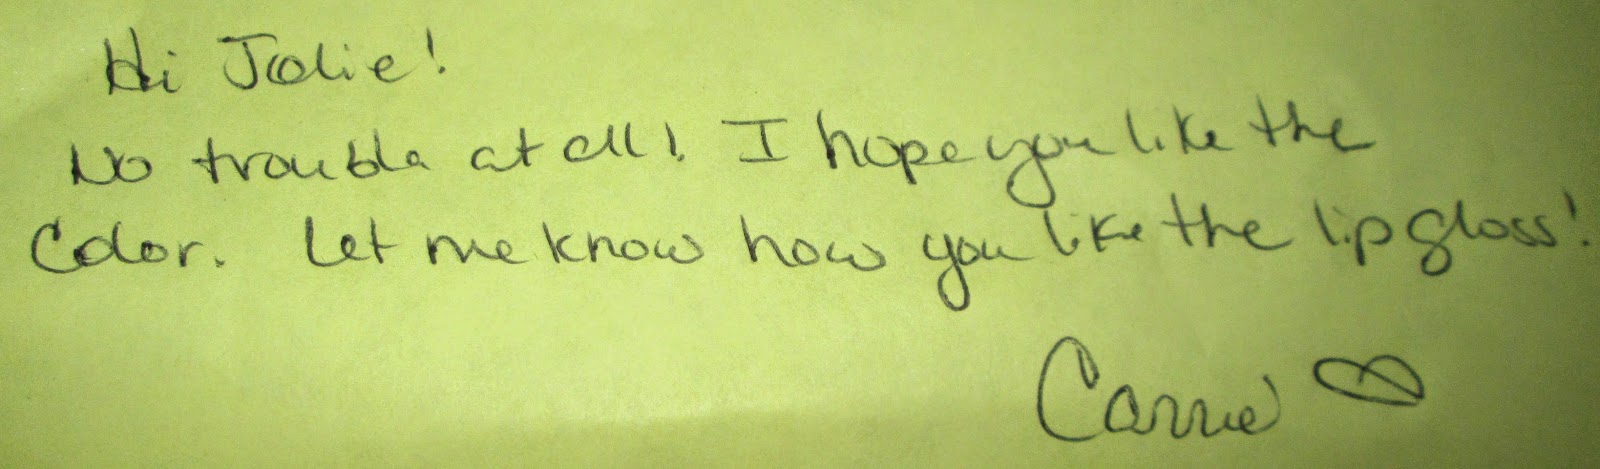 Hi Jolie!
No trouble at all! I hope you like the
Color. Let me know how you like the lip gloss!
Carrie